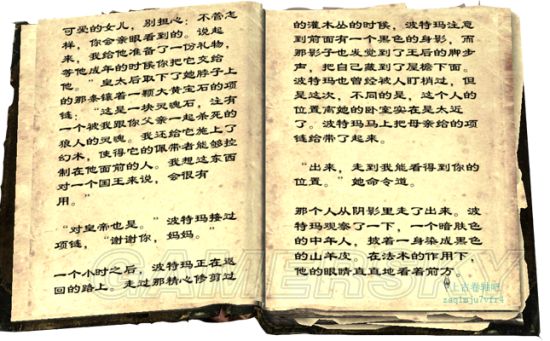 可爱的女儿，别担心：不管怎
样，你会亲眼看到的。说起
来，我给他准备了一份礼物，
等他成年的时候你把它交给
他。”皇太后取下了她脖子上
的那条镶着一颗大黄宝石的项
链：“这是一块灵魂石，注有
一个被我跟你父亲一起杀死的
狼人的灵魂。我还给它施上了
幻术，使得它的佩带者能够控
制在他面前的人。我想这东西
对一个国王来说，会很有
用。”
“对皇帝也是。”波特玛接过
项链，“谢谢你，妈妈。”
一个小时之后，波特玛正在返
回的路上。走过那精心修剪过
的灌木丛的时候，波特玛注意
到前面有一个黑色的身影，而
那影子也发觉到了王后的脚步
声，把自己藏到了屋檐下面。
波特玛也曾经被人盯梢过，但
是这次，不同的是，这个人的
位置离她的卧室实在是太近
了。波特玛马上把母亲给的项
链给带了起来。
“出来，走到我能看得到你的
位置。”她命令道。
那个人从阴影里走了出来。波
特玛观察了一下，一个暗肤色
的中年人，披着一身染成黑色
的山羊皮。在法术的作用下，
他的眼睛直直地看着前方。
GAMERSKY
上古卷轴吧
zaq1mju7vfr4